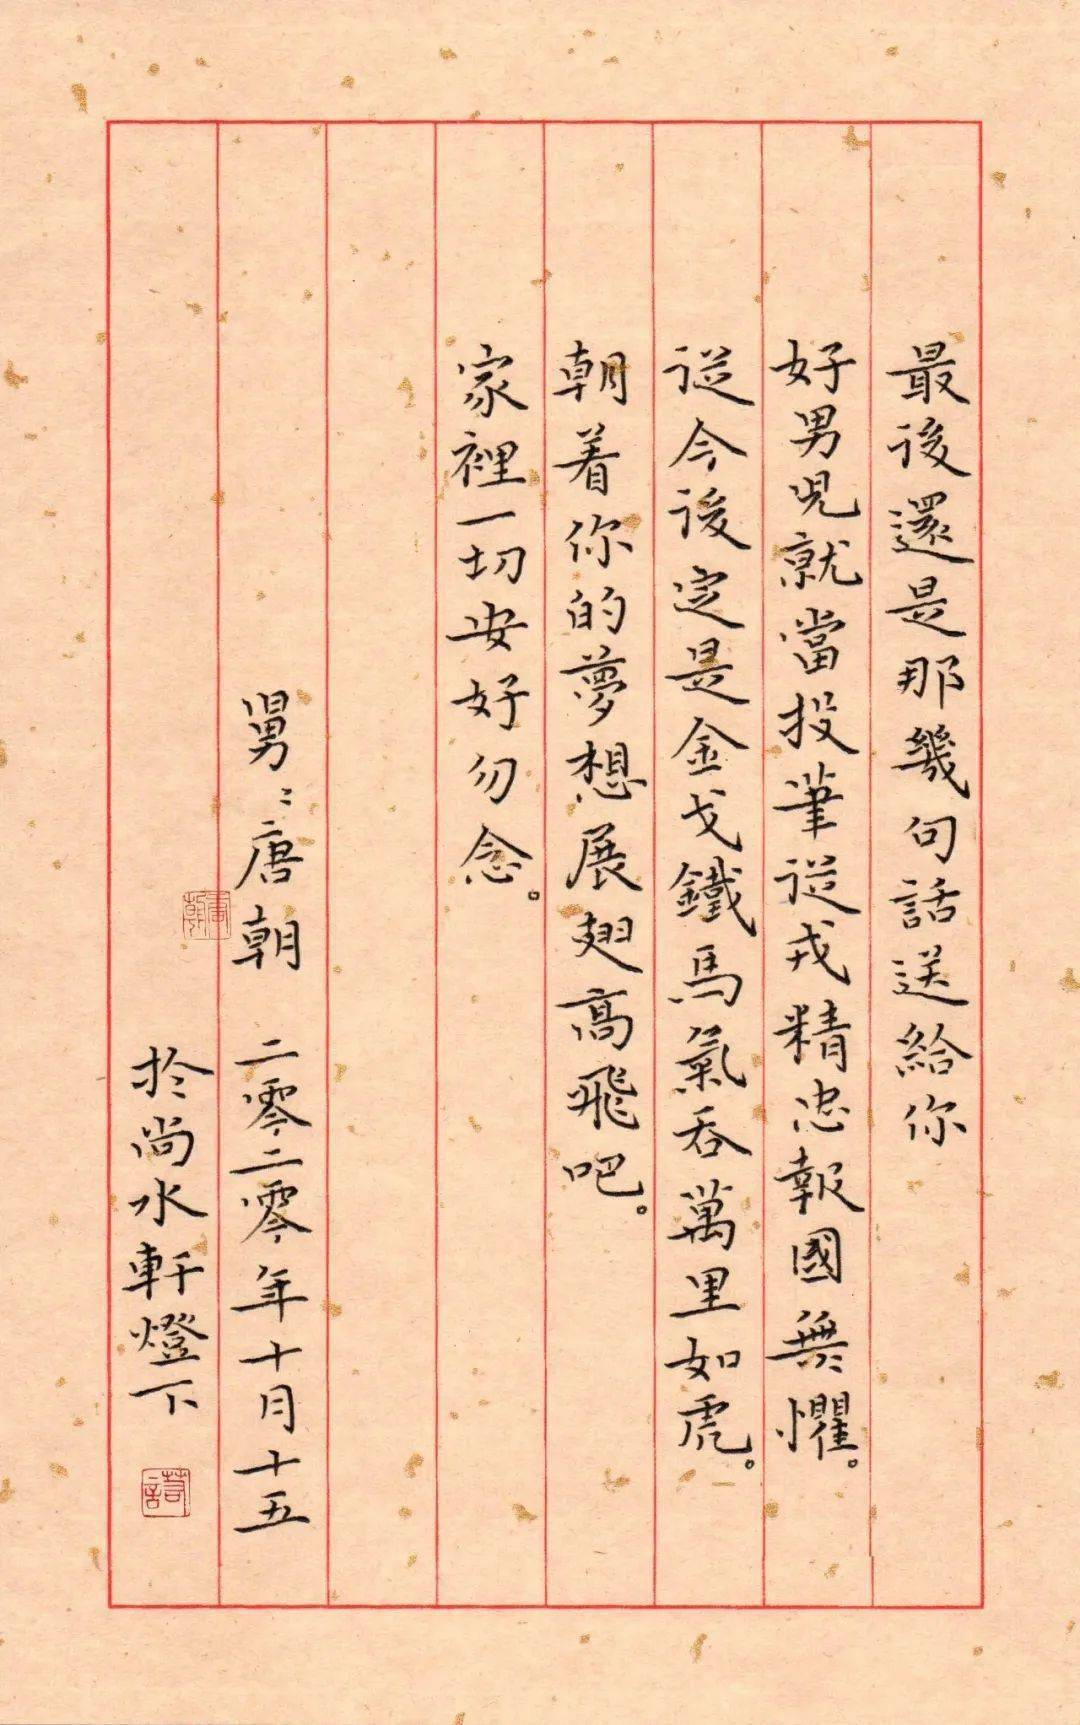 最後還是那幾句話送給你
好男兒就當投筆從戎精忠報國無懼。
從今後定是金戈鐵馬氣吞萬里如虎。
朝着你的夢想展翅高飛吧。
家裡一切安好勿念。
舅：唐朝 二零二零年十月十五
於尚水軒燈下